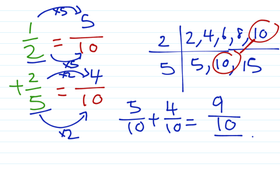 ×5
1/2 = 5/10
×5
×2
+ 2/5 = 4/10
×2
2 | 2, 4, 6, 8, 10
5 | 5, 10, 15
5/10 + 4/10 = 9/10.